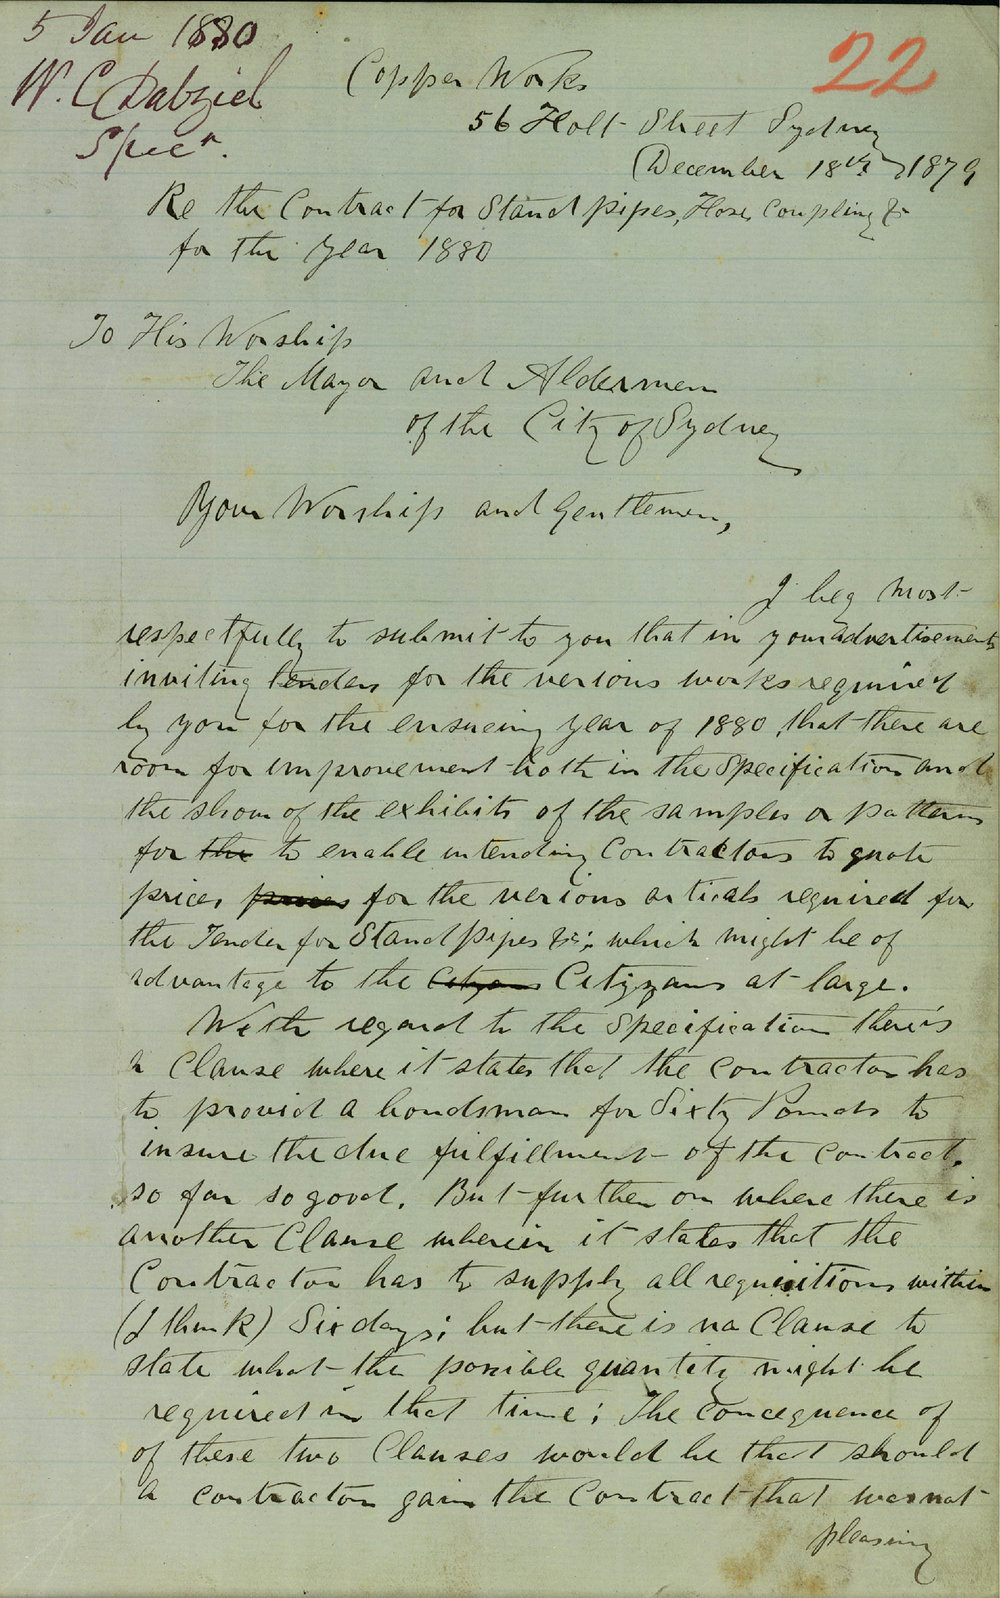 5 Jan 1880
W. C. Dalziel
Specn.
22
Copper Works
56 Holt Street Sydney
(December 18th) 1879
Re the Contract for Stand pipes, Hose, Coupling &c
for the Year 1880
To His Worship
The Mayor and Aldermen
of the City of Sydney
Your Worship and Gentlemen,
I beg most
respectfully to submit to you that in your advertisements
inviting tenders for the verious works required
by you for the ensueing year of 1880, that there are
room for improvement both in the Specification and
the show of the exhibits of the samples or patterns
for the to enable intending Contractors to quote
prices prices for the verious articals required for
the Tender for Stand pipes &c; which might be of
advantage to the Citizens Citizzans at large.
With regard to the Specification there is
a Clause where it states that the contractor has
to provid a bondsman for Sixty Pounds to
insure the due fulfillment of the contract.
so far so good. But further on where there is
another Clause wherein it states that the
Contractor has to supply all requisitions within
(I think) Six days; but there is no Clause to
state what the possible quantity might be
required in that time; The Concequence of
of these two Clauses would be that should
a contractor gain the Contract that was not
pleasing